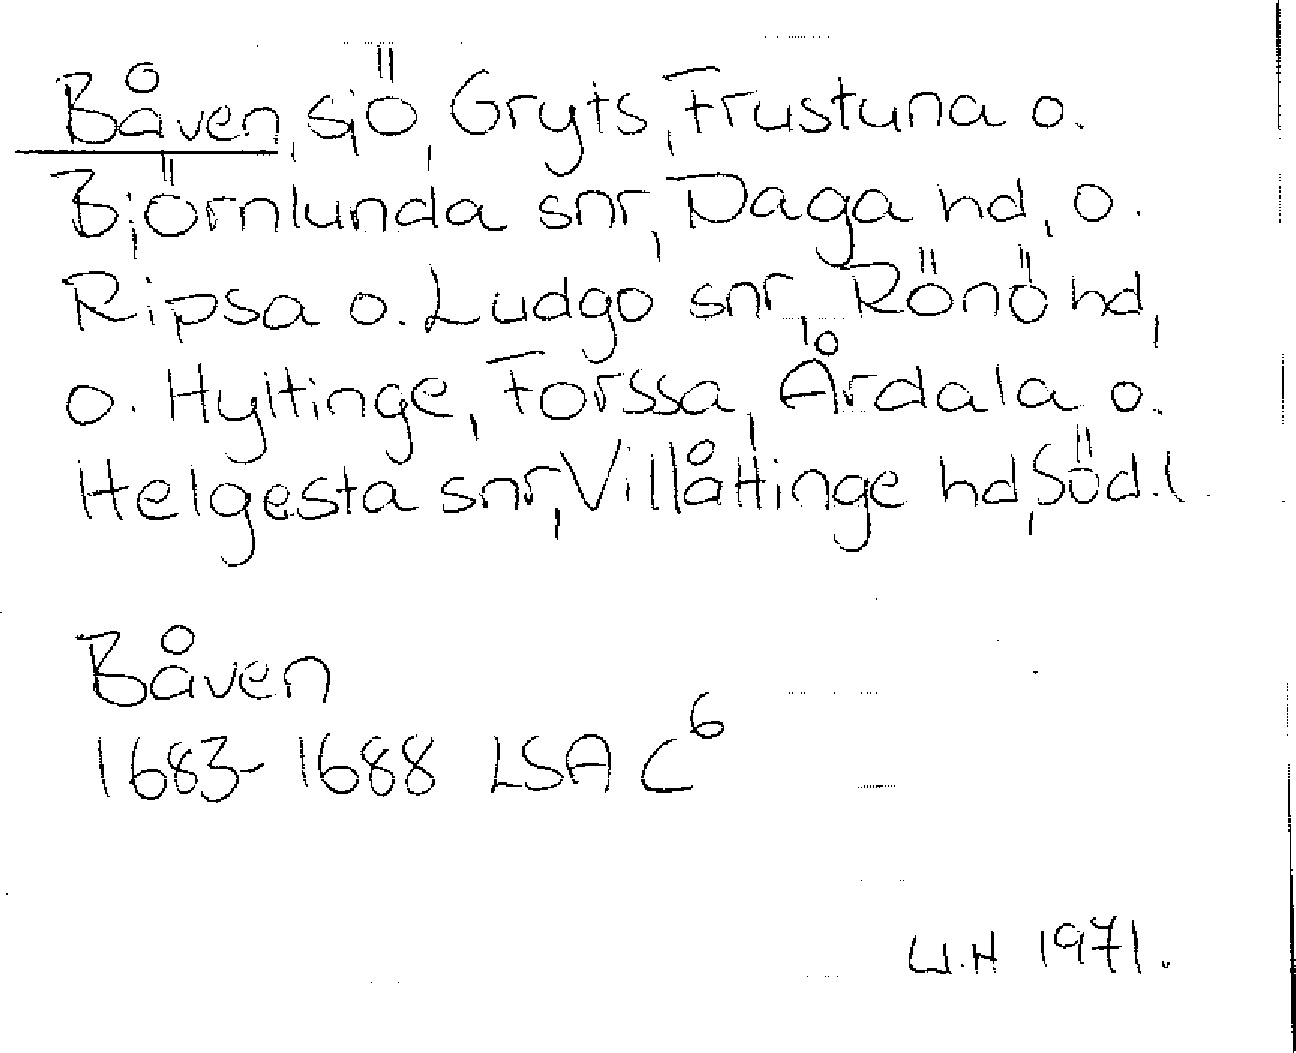 Båven, sjö, Gryts, Frustuna o.
Björnlunda snr, Daga hd, o.
Ripsa o. Ludgo snr, Rönö hd,
o. Hyltinge, Forssa, Årdala o.
Helgesta snr, Villåttinge hd, Söd.l.
Båven
1683-1688 LSA C⁶
W.H 1971.